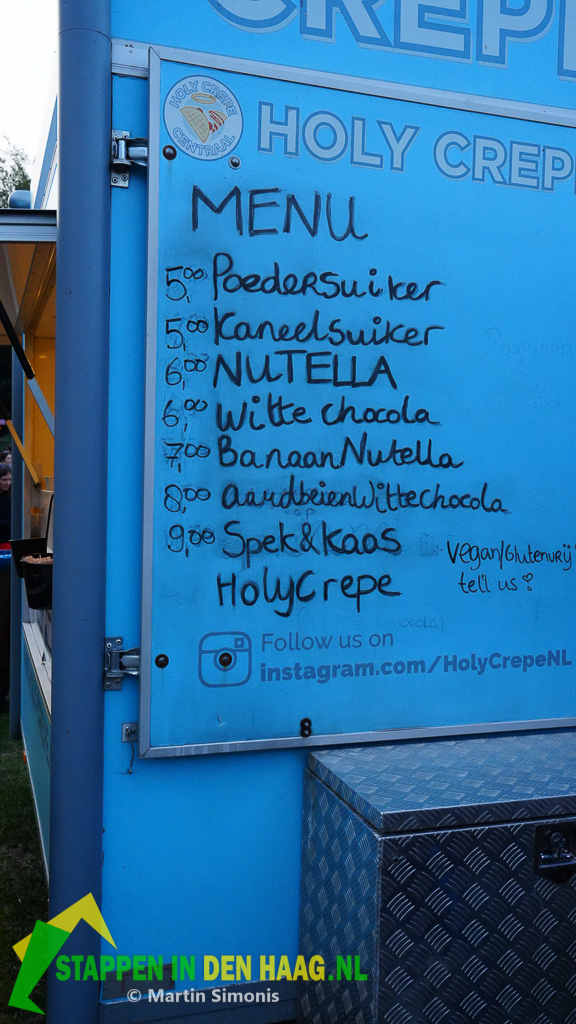 CREPE
HOLY CREPE
CENTRAAL
HOLY CREPE
MENU
5,00 Poedersuiker
5,00 Kaneelsuiker
6,00 NUTELLA
6,00 Witte chocola
7,00 Banaan Nutella
8,00 aardbeien Witte chocola
9,00 Spek & Kaas
Holy Crepe
Vegan/Glutenvrij
tell us
Follow us on
instagram.com/HolyCrepeNL
8
STAPPEN IN DEN HAAG.NL
© Martin Simonis